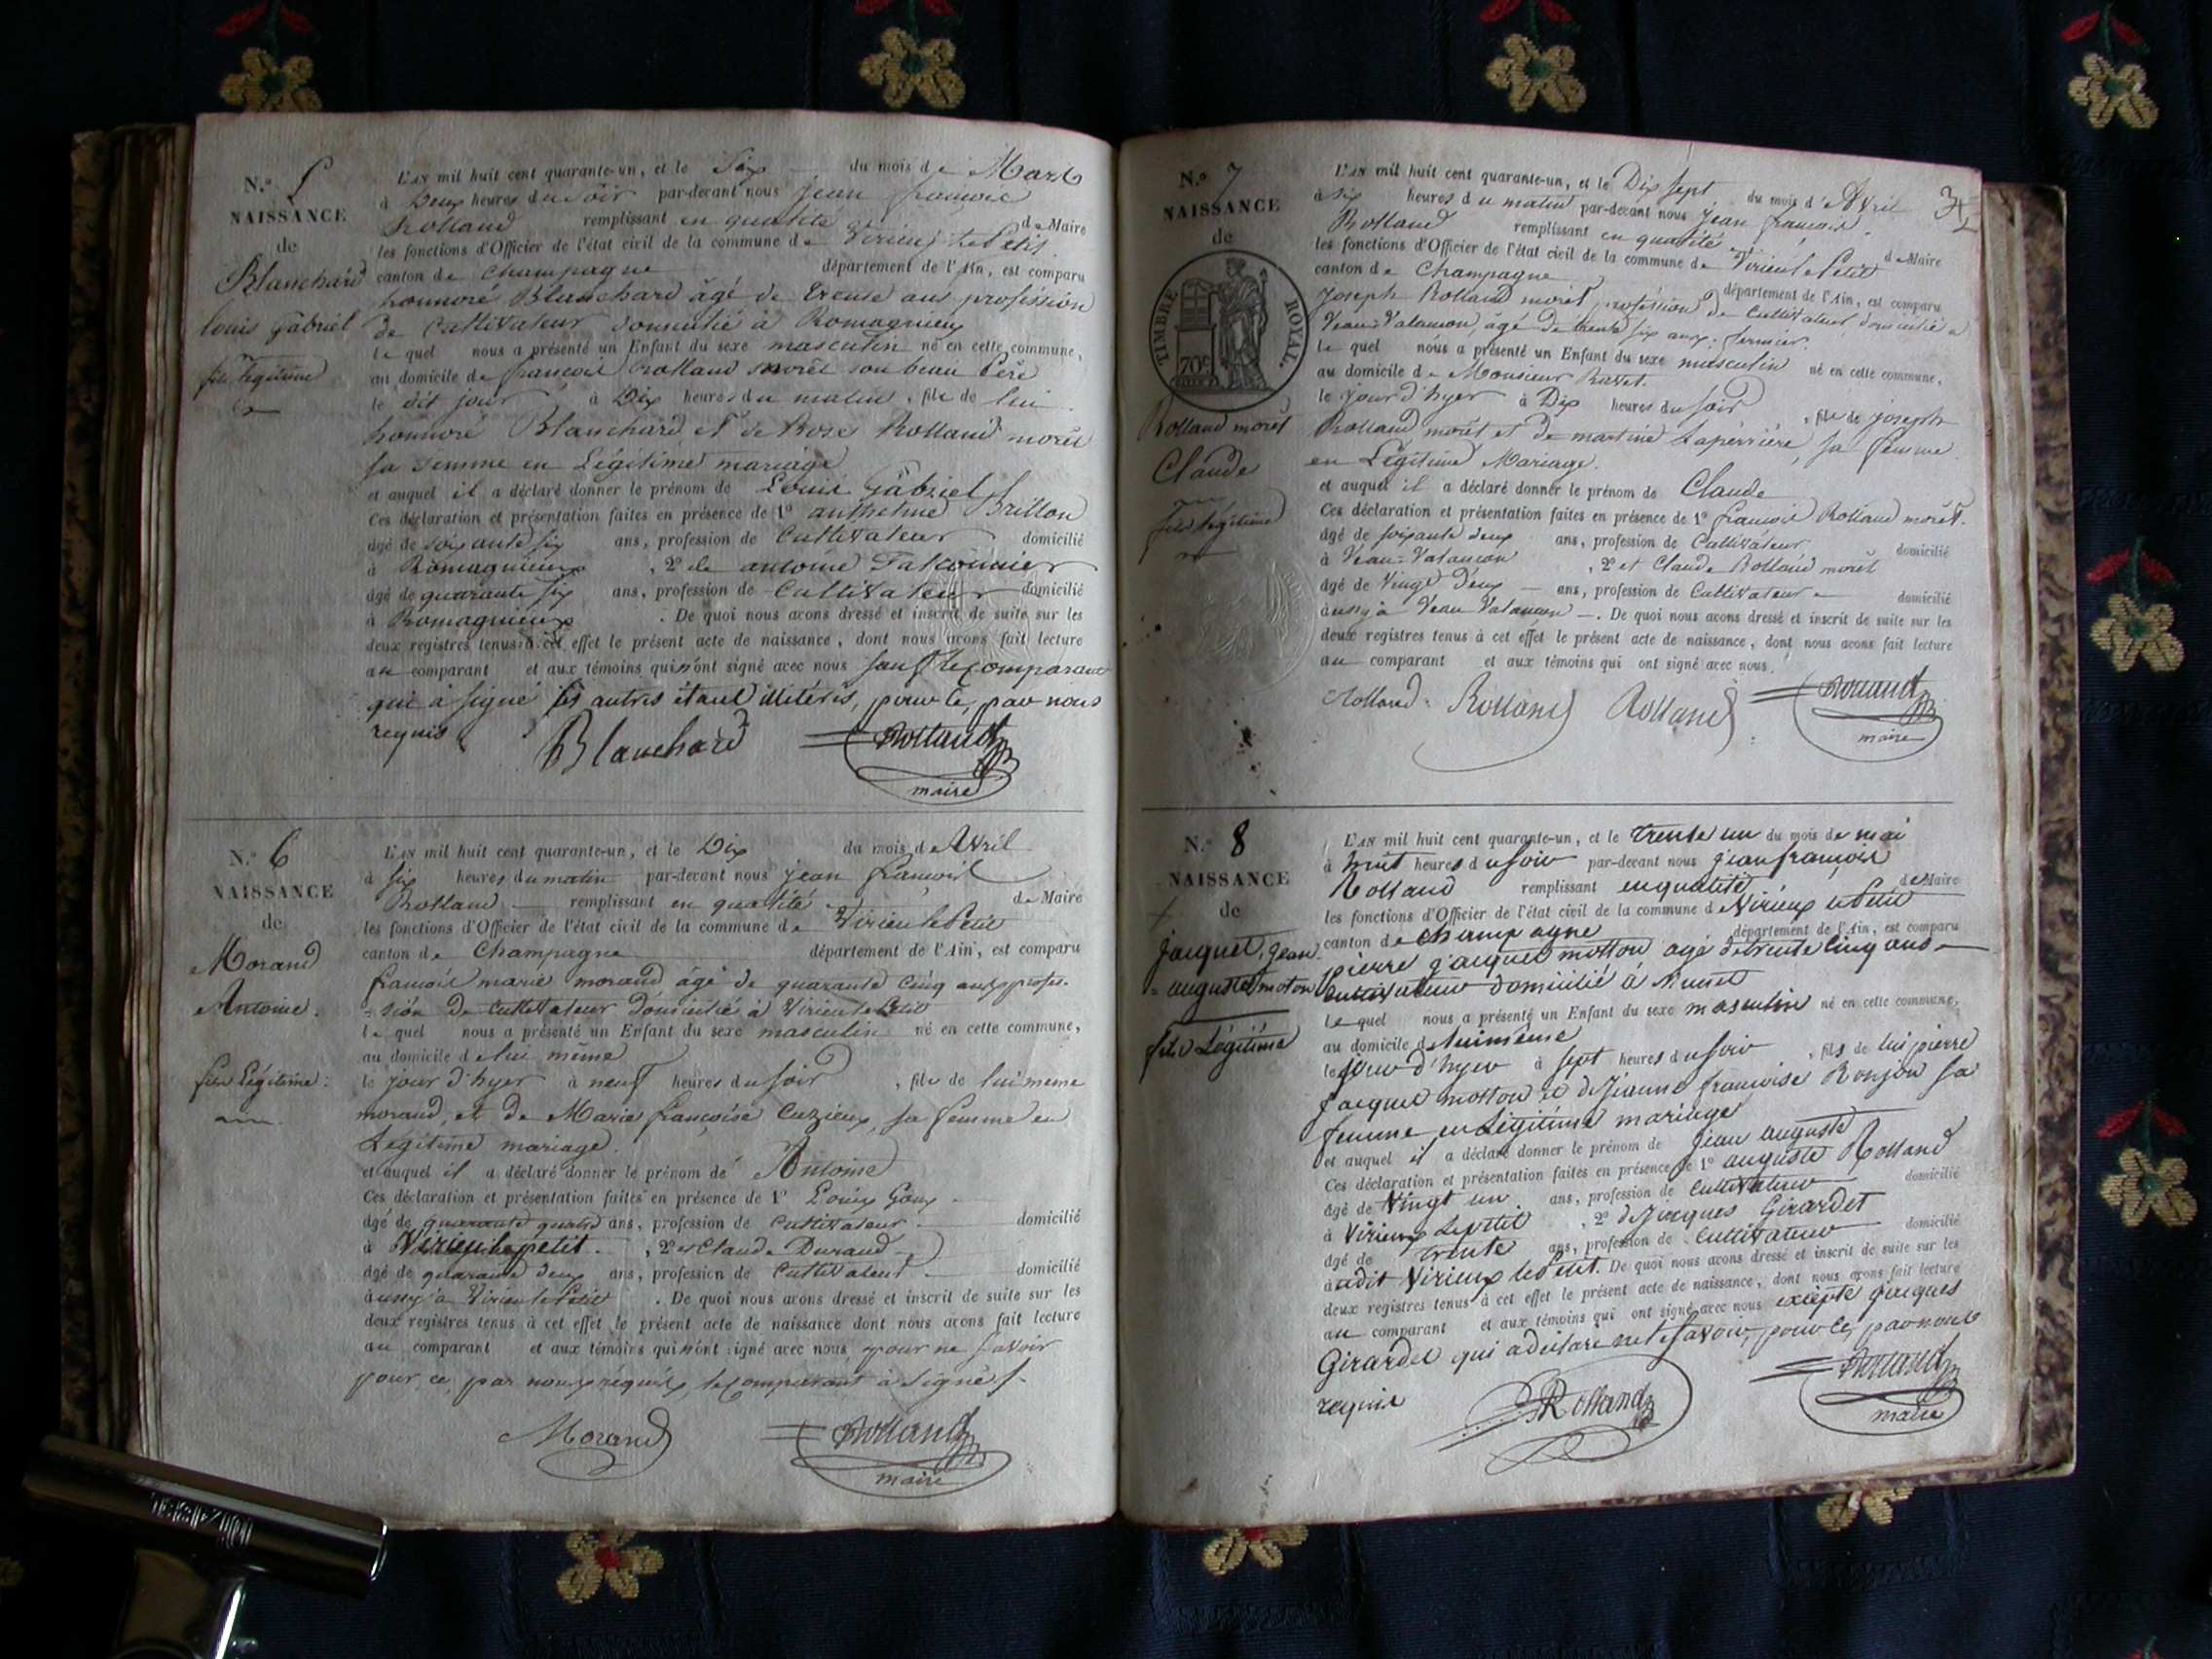 N.º 5
NAISSANCE
de
Blanchard
louis Gabriel
fils légitime
L'AN mil huit cent quarante-un, et le Six du mois de Mars
à Deux heures du soir par-devant nous jean françois
Rolland remplissant en qualité de Maire
les fonctions d'Officier de l'état civil de la commune de Virieu le Petit
canton de Champagne département de l'Ain, est comparu
honnoré Blanchard âgé de trense ans profession
de Cultivateur domicilié à Romagnieux
le quel nous a présenté un Enfant du sexe masculin né en cette commune,
au domicile de françois Rolland morêt son beau Père
le dit jour à Dix heures du matin, fils de lui
honnoré Blanchard et de Rose Rolland morêt
sa femme en Légitime mariage
et auquel il a déclaré donner le prénom de Louis Gabriel
Ces déclaration et présentation faites en présence de 1º anthelme Brillon
âgé de soixante six ans, profession de Cultivateur domicilié
à Romagnieux, 2º de antoine Falconnier
âgé de quarante six ans, profession de Cultivateur domicilié
à Romagnieux. De quoi nous avons dressé et inscrit de suite sur les
deux registres tenus à cet effet le présent acte de naissance, dont nous avons fait lecture
au comparant et aux témoins qui n'ont signé avec nous sauf le comparant
qui à signé les autres étant illitérés, pour ce, par nous
requis
Blanchard Rolland
maire
N.º 6
NAISSANCE
de
Morand
Antoine.
fils Légitime:
L'AN mil huit cent quarante-un, et le Dix du mois d'Avril
à six heures du matin par-devant nous jean françois
Rolland remplissant en qualité de Maire
les fonctions d'Officier de l'état civil de la commune de Virieu le Petit
canton de Champagne département de l'Ain, est comparu
françois marie morand âgé de quarante cinq ans profes-
=sion de Cultivateur domicilié à Virieu le Petit
le quel nous a présenté un Enfant du sexe masculin né en cette commune,
au domicile de lui même
le jour d'hyer à neuf heures du soir, fils de lui meme
morand, et de Marie françoise Cuzieux, sa femme en
Légitime mariage.
et auquel il a déclaré donner le prénom de Antoine
Ces déclaration et présentation faites en présence de 1º Louis Goux
âgé de quarante quatre ans, profession de Cultivateur domicilié
à Virieu le petit., 2º et Claude Durand
âgé de quarante deux ans, profession de Cultivateur domicilié
aussy à Virieu le Petit. De quoi nous avons dressé et inscrit de suite sur les
deux registres tenus à cet effet le présent acte de naissance dont nous avons fait lecture
au comparant et aux témoins qui n'ont signé avec nous pour ne savoir
pour ce, par nous requis le comparant à signé
Morand Rolland
maire
34
N.º 7
NAISSANCE
de
TIMBRE ROYAL.
70c
Rolland morêt
Claude
fils légitime
L'AN mil huit cent quarante-un, et le Dix sept du mois d'Avril
à six heures du matin par-devant nous jean françois
Rolland remplissant en qualité de Maire
les fonctions d'Officier de l'état civil de la commune de Virieu le Petit
canton de Champagne département de l'Ain, est comparu
Joseph Rolland morêt profession de Cultivateur domicilié à
Veau-Valancon, âgé de trente six ans, fermier.
le quel nous a présenté un Enfant du sexe masculin né en cette commune,
au domicile de Monsieur
le jour d'hyer à Dix heures du soir, fils de joseph
Rolland morêt et de martine Laperrière, sa femme
en Légitime Mariage.
et auquel il a déclaré donner le prénom de Claude
Ces déclaration et présentation faites en présence de 1º françois Rolland morêt.
âgé de soixante deux ans, profession de Cultivateur domicilié
à Veau-Valancon, 2º et Claude Rolland morêt
âgé de Vingt Deux ans, profession de Cultivateur domicilié
aussy à Veau Valancon. De quoi nous avons dressé et inscrit de suite sur les
deux registres tenus à cet effet le présent acte de naissance, dont nous avons fait lecture
au comparant et aux témoins qui ont signé avec nous.
Rolland Rolland Rolland Rolland
maire
N.º 8
NAISSANCE
de
jacquet, jean
=auguste moton
fils Légitime
L'AN mil huit cent quarante-un, et le trente un du mois de mai
à huit heures du soir par-devant nous jean françois
Rolland remplissant en qualité de Maire
les fonctions d'Officier de l'état civil de la commune de Virieux le Petit
canton de Champagne département de l'Ain, est comparu
pierre jacquet motton agé de trente cinq ans
Cultivateur domicilié à Munet
le quel nous a présenté un Enfant du sexe masculin né en cette commune,
au domicile de lui même
le jour d'hyer à sept heures du soir, fils de lui pierre
jacquet motton et de jeanne françoise Ronjon sa
femme en Légitime mariage
et auquel il a déclaré donner le prénom de jean auguste
Ces déclaration et présentation faites en présence de 1º auguste Rolland
âgé de Vingt un ans, profession de Cultivateur domicilié
à Virieux le Petit, 2º de jacques Girardet
âgé de trente ans, profession de Cultivateur domicilié
audit Virieux le Petit. De quoi nous avons dressé et inscrit de suite sur les
deux registres tenus à cet effet le présent acte de naissance, dont nous avons fait lecture
au comparant et aux témoins qui ont signé avec nous excepté jacques
Girardet qui a déclaré ne le savoir, pour ce, par nous
requis
Rolland Rolland
maire